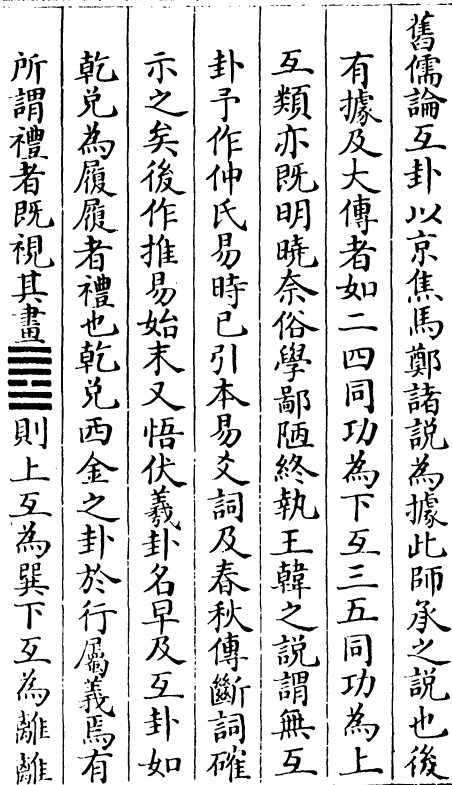 舊儒論互卦以京焦馬鄭諸説為據此師承之説也後
有據及大傳者如二四同功為下互三五同功為上
互類亦既明曉奈俗學鄙陋終執王韓之説謂無互
卦予作仲氏易時已引本易爻詞及春秋傳斷詞確
示之矣後作推易始末又悟伏羲卦名早及互卦如
乾兌為履履者禮也乾兌西金之卦於行屬義焉有
所謂禮者既視其畫䷉則上互為巽下互為離離